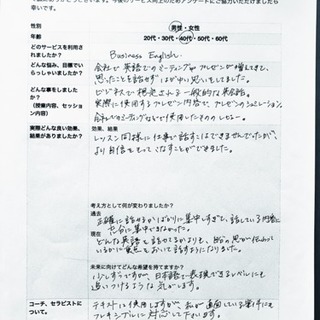 幸いです。
性別
男性・女性
年齢
20代・30代・40代・50代・60代
どのサービスを利用されましたか?
Business English.
どんな悩み、目標でいらっしゃいましたか?
会社で英語でのミーティングやプレゼンが増えてきて、
思ったことを話せずはがゆい思いをしてました。
どんな事をしましたか?
(授業内容、セッション内容)
ビジネスで想定される一般的な英会話。
実際に使用するプレゼン内容で、プレゼンのシュミレーション。
実際どんな良い効果、結果がありましたか?
効果、結果
レッスン同様に仕事で話すことはできませんでしたが、
より自信をもってこなすことができました。
考え方として何が変わりましたか?
過去
正確に話せるかばかりに集中しすぎて、話している内容に
十分に集中できなかった。
現在
どんな英語を話せてるかよりも、自分の思いが伝わって
いるかに重点をおいて話すようになりました。
未来に向けてどんな希望を持てますか?
少しずつですが、日本語で表現できるレベルにも
追いつけるような気がします。
コーチ、セラピストについて。
テキストに使用しますが、私が直面している案件にも
フレキシブルに対応して下さいます。